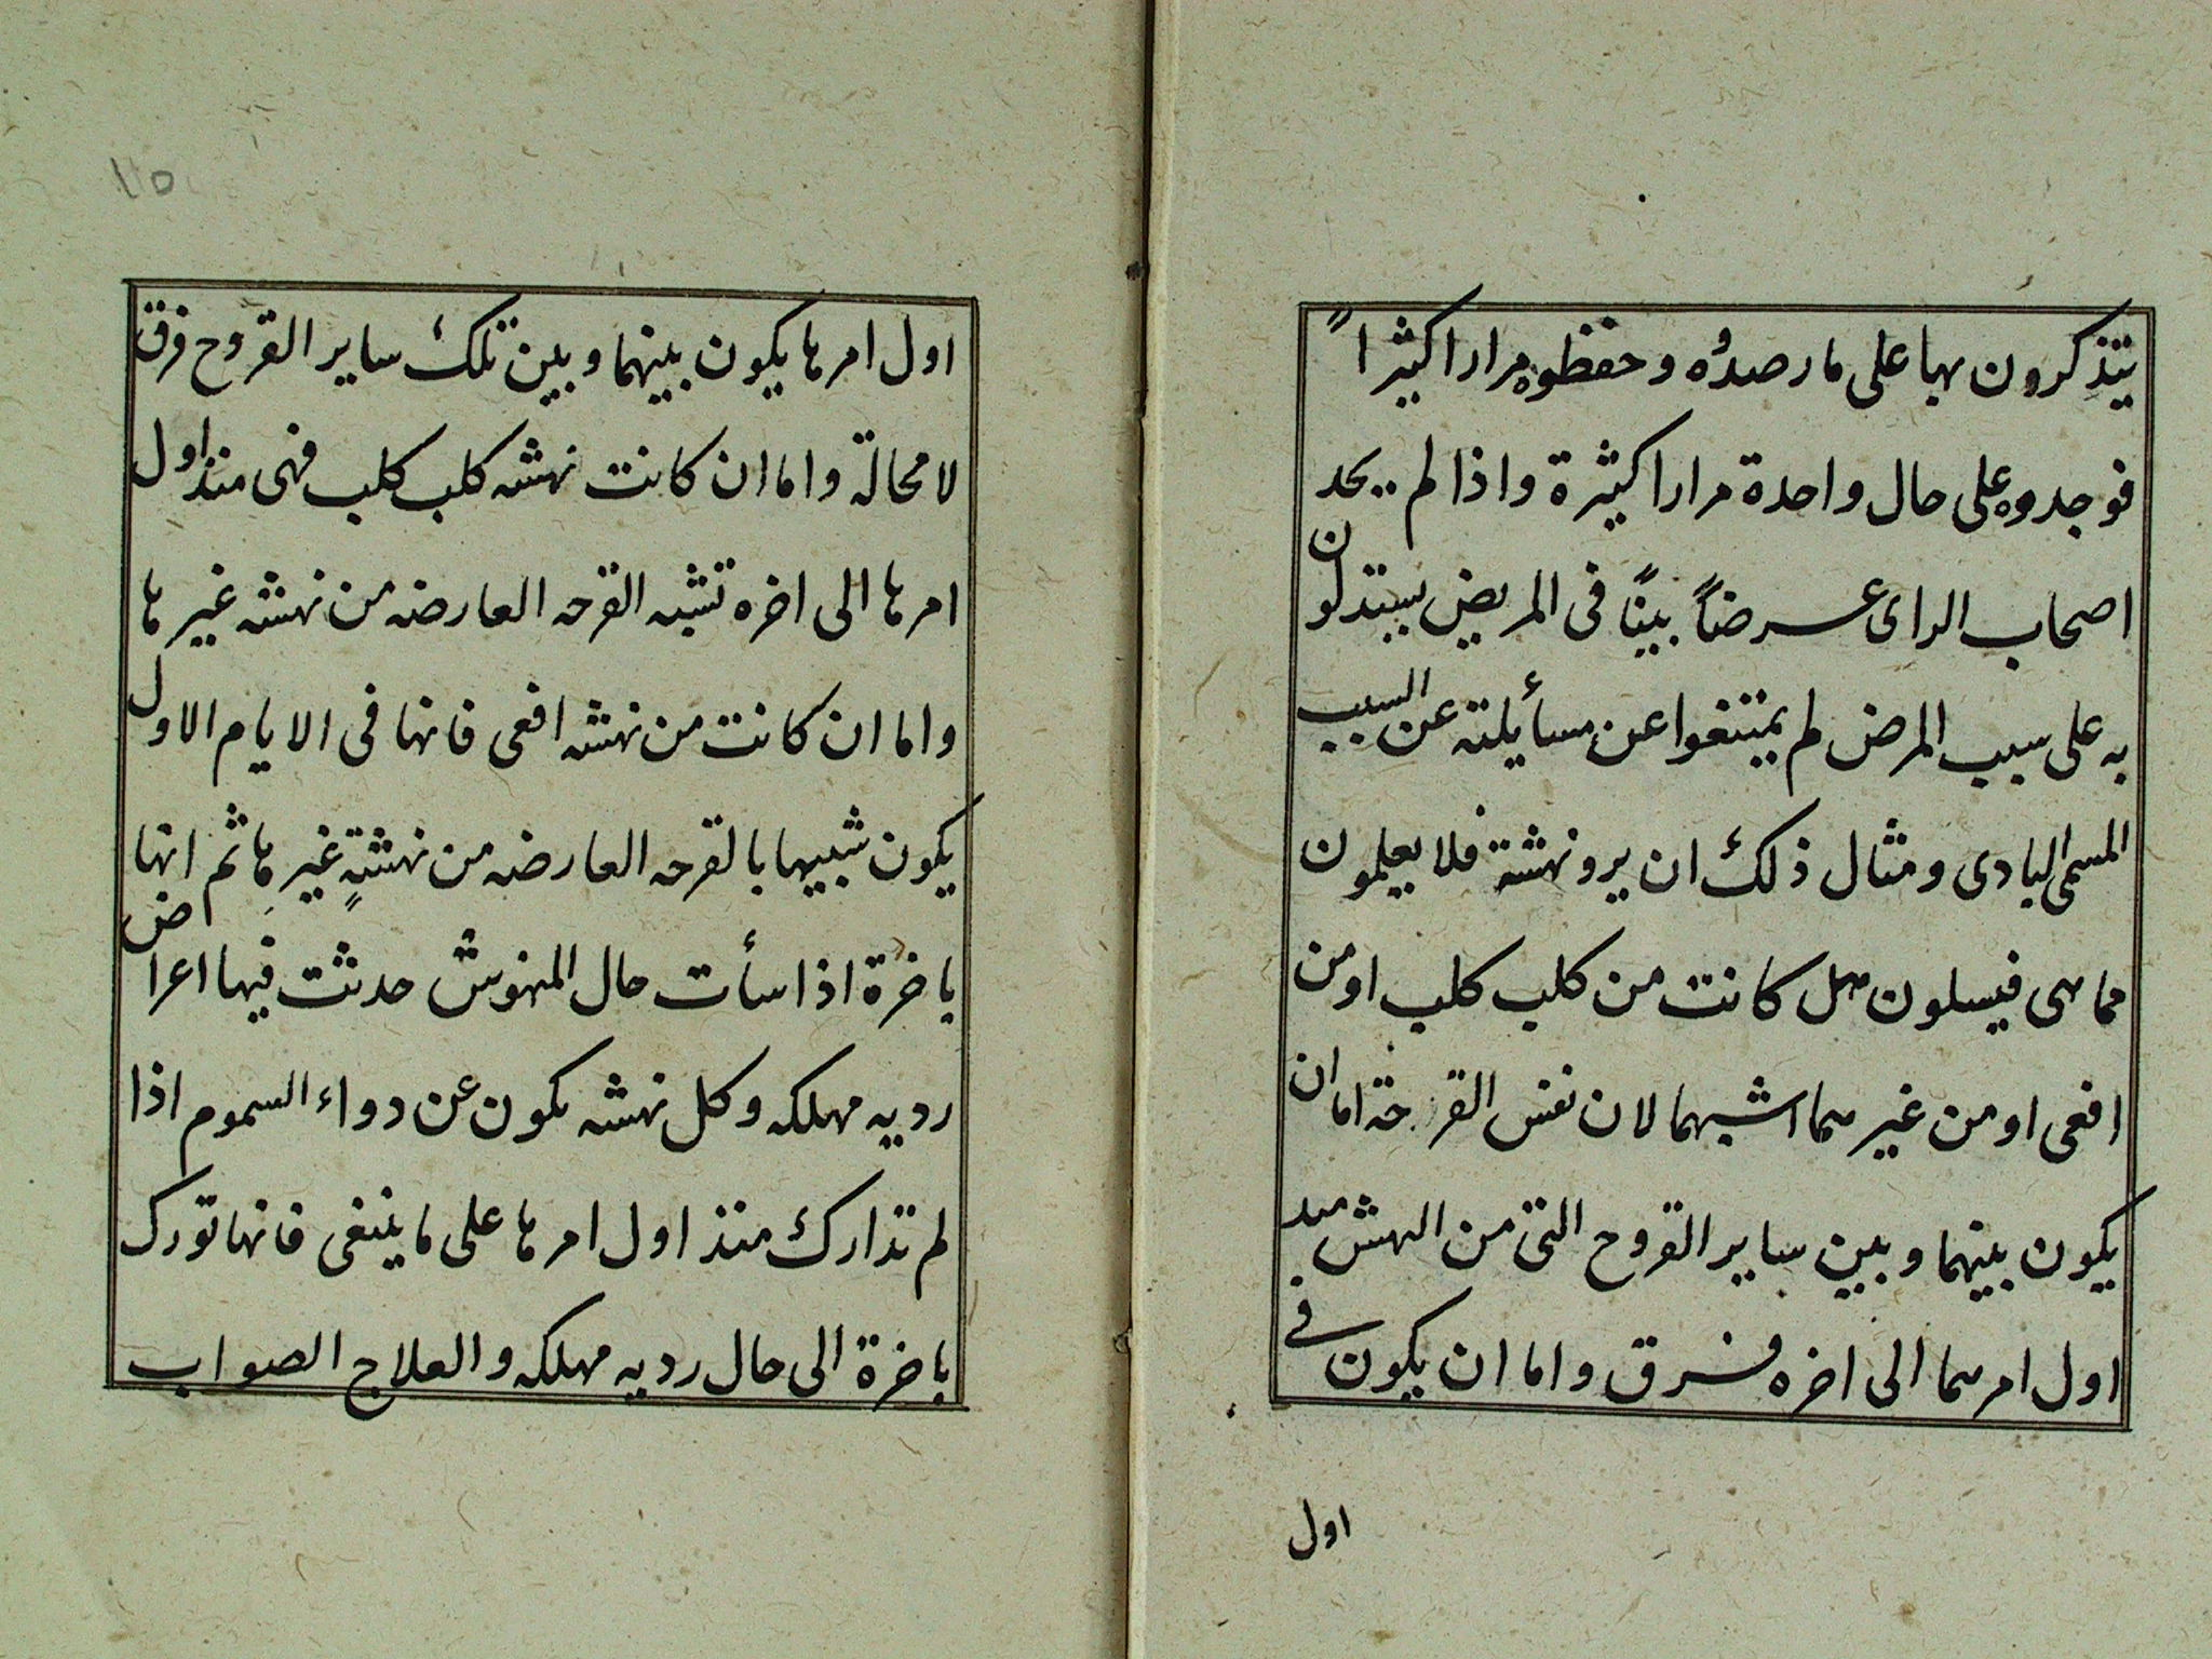 يتذكرون بها على ما رصدُوه وحفظوه مرارا كثيرا ً
فوجدوه على حال واحدة مرارا كثيرة واذا لم يحد
اصحاب الراى عرضاً بينًا فى المريض يستدلون
به على سبب المرض لم يمتنعوا عن مسأيلته عن السبب
المسمى البادى ومثال ذلك ان يرو نهشة فلا يعلمون
مما هى فيسلون هل كانت من كلب كلب او من
افعى او من غير هما اشبهما لان نفس القرحة اما ان
يكون بينهما وبين ساير القروح التى من النهش منذ
اول امرهما الى اخره فرق واما ان يكون فى
اول
١١٥
اول امرها يكون بينهما وبين تلك ساير القروح فرق
لا محالة واما ان كانت نهشه كلب كلب فهى منذ اول
امرها الى اخره تشبه القرحه العارضه من نهشه غيرها
واما ان كانت من نهشه افعى فانها فى الايام الاول
يكون شبيها بالقرحه العارضه من نهشةٍ غيرها ثم انها
باخرة اذا سأت حال المنهوش حدثت فيها اعراض
رديه مهلكه وكل نهشه يكون عن دواء السموم اذا
لم تدارك منذ اول امرها على ما ينبغى فانها تورك
باخرة الى حال رديه مهلكه والعلاج الصواب